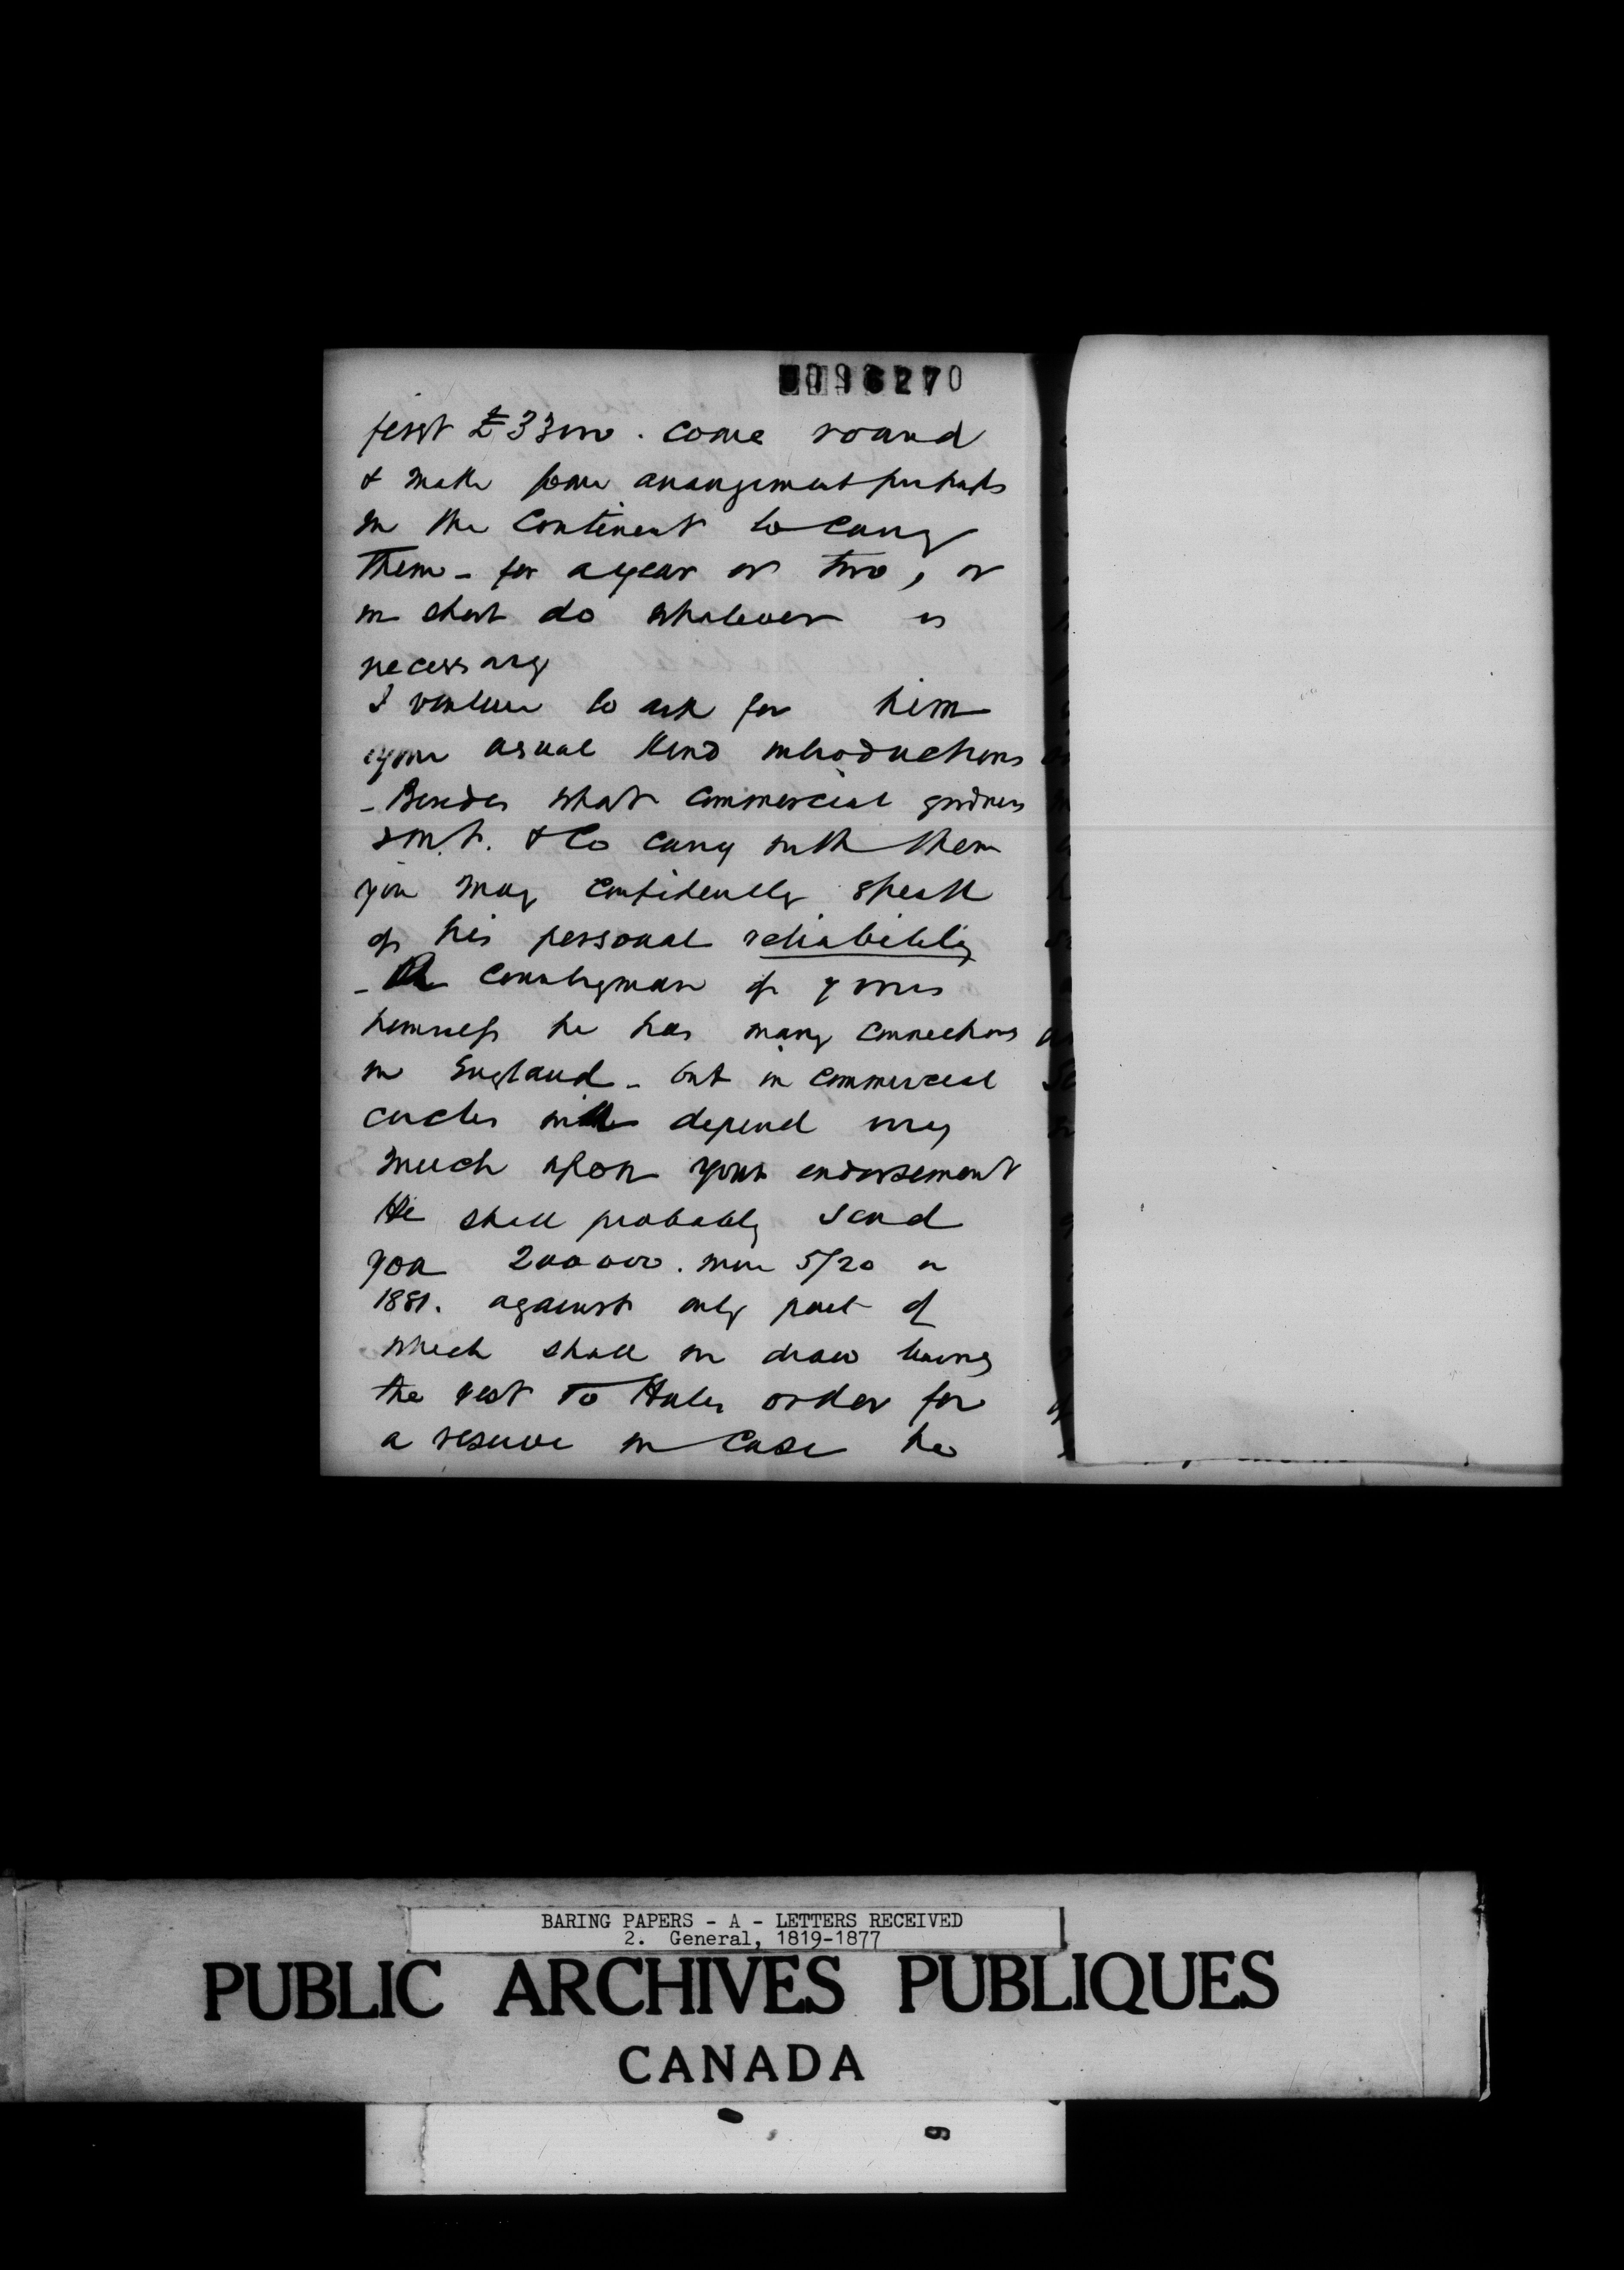 first £33m. come round
& make some arrangement perhaps
on the Continent to carry
Them - for a year or two, or
in short do whatever is
necessary
I venture to ask for him
your usual kind introductions
- Besides what commercial goodness
& Co carry with them
you may confidently speak
of his personal reliability
- A countryman of yours
himself he has many connections
in England - but in commercial
circles will depend very
much upon your endorsement
We shall probably send
you 200000. more 5/20 or
1881. against only part of
which shall we draw leaving
the rest To Hales order for
a reserve in case he
BARING PAPERS - A - LETTERS RECEIVED
2. General, 1819-1877
PUBLIC ARCHIVES PUBLIQUES
CANADA